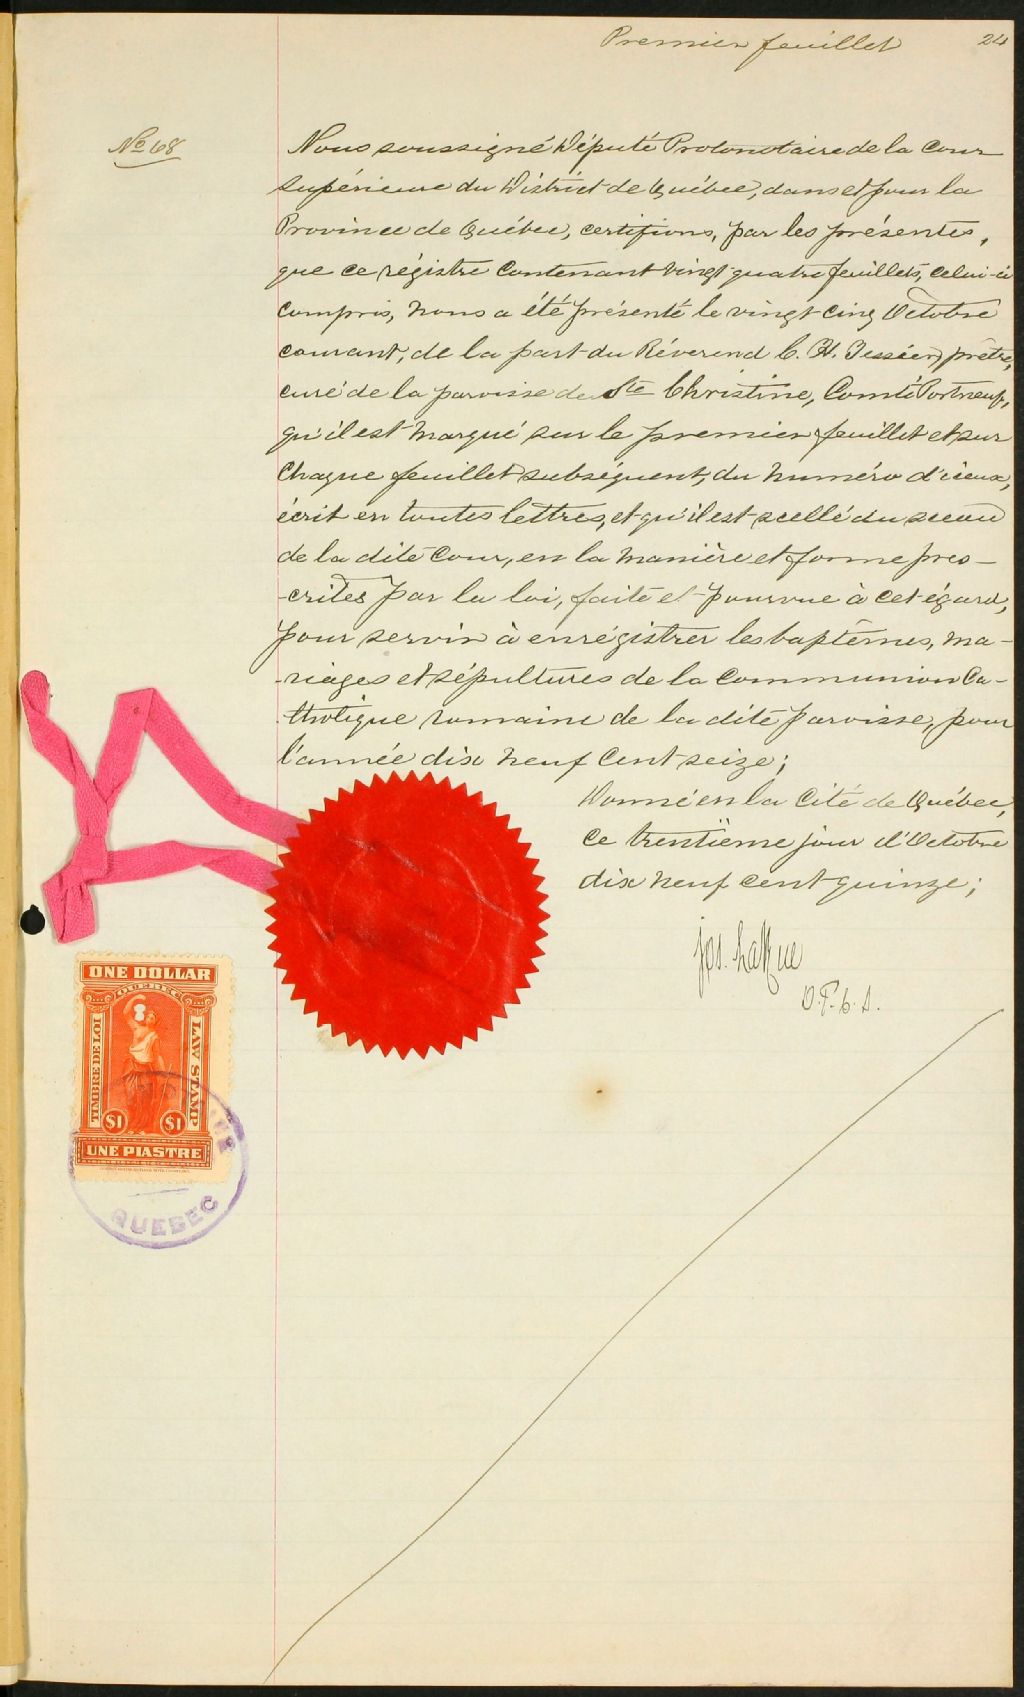 Premier feuillet 24
No 68
Nous soussigné Député Protonotaire de la Cour
Supérieure du District de Québec, dans et pour la
Province de Québec, certifions, par les présentes,
que ce régistre contenant vingt quatre feuillets, celui-ci
compris, nous a été présenté le vingt cinq Octobre
courant, de la part du Révérend C. H. Tessier, prêtre,
curé de la paroisse de Ste Christine, Comté Portneuf,
qu'il est marqué sur le premier feuillet et sur
chaque feuillet subséquent, du numéro d'iceux,
écrit en toutes lettres, et qu'il est scellé du sceau
de la dite Cour, en la manière et forme pres-
-crites par la loi, faite et pourvue à cet égard,
pour servir à enrégistrer les baptêmes, ma-
-riages et sépultures de la Communion Ca-
-tholique romaine de la dite paroisse, pour
l'année dix neuf cent seize;
Donné en la Cité de Québec,
ce trentième jour d'Octobre
dix neuf cent quinze;
Jos. LaRue
D.P.C.S.
ONE DOLLAR
QUEBEC
TIMBRE DE LOI
LAW STAMP
$1 $1
UNE PIASTRE
QUEBEC